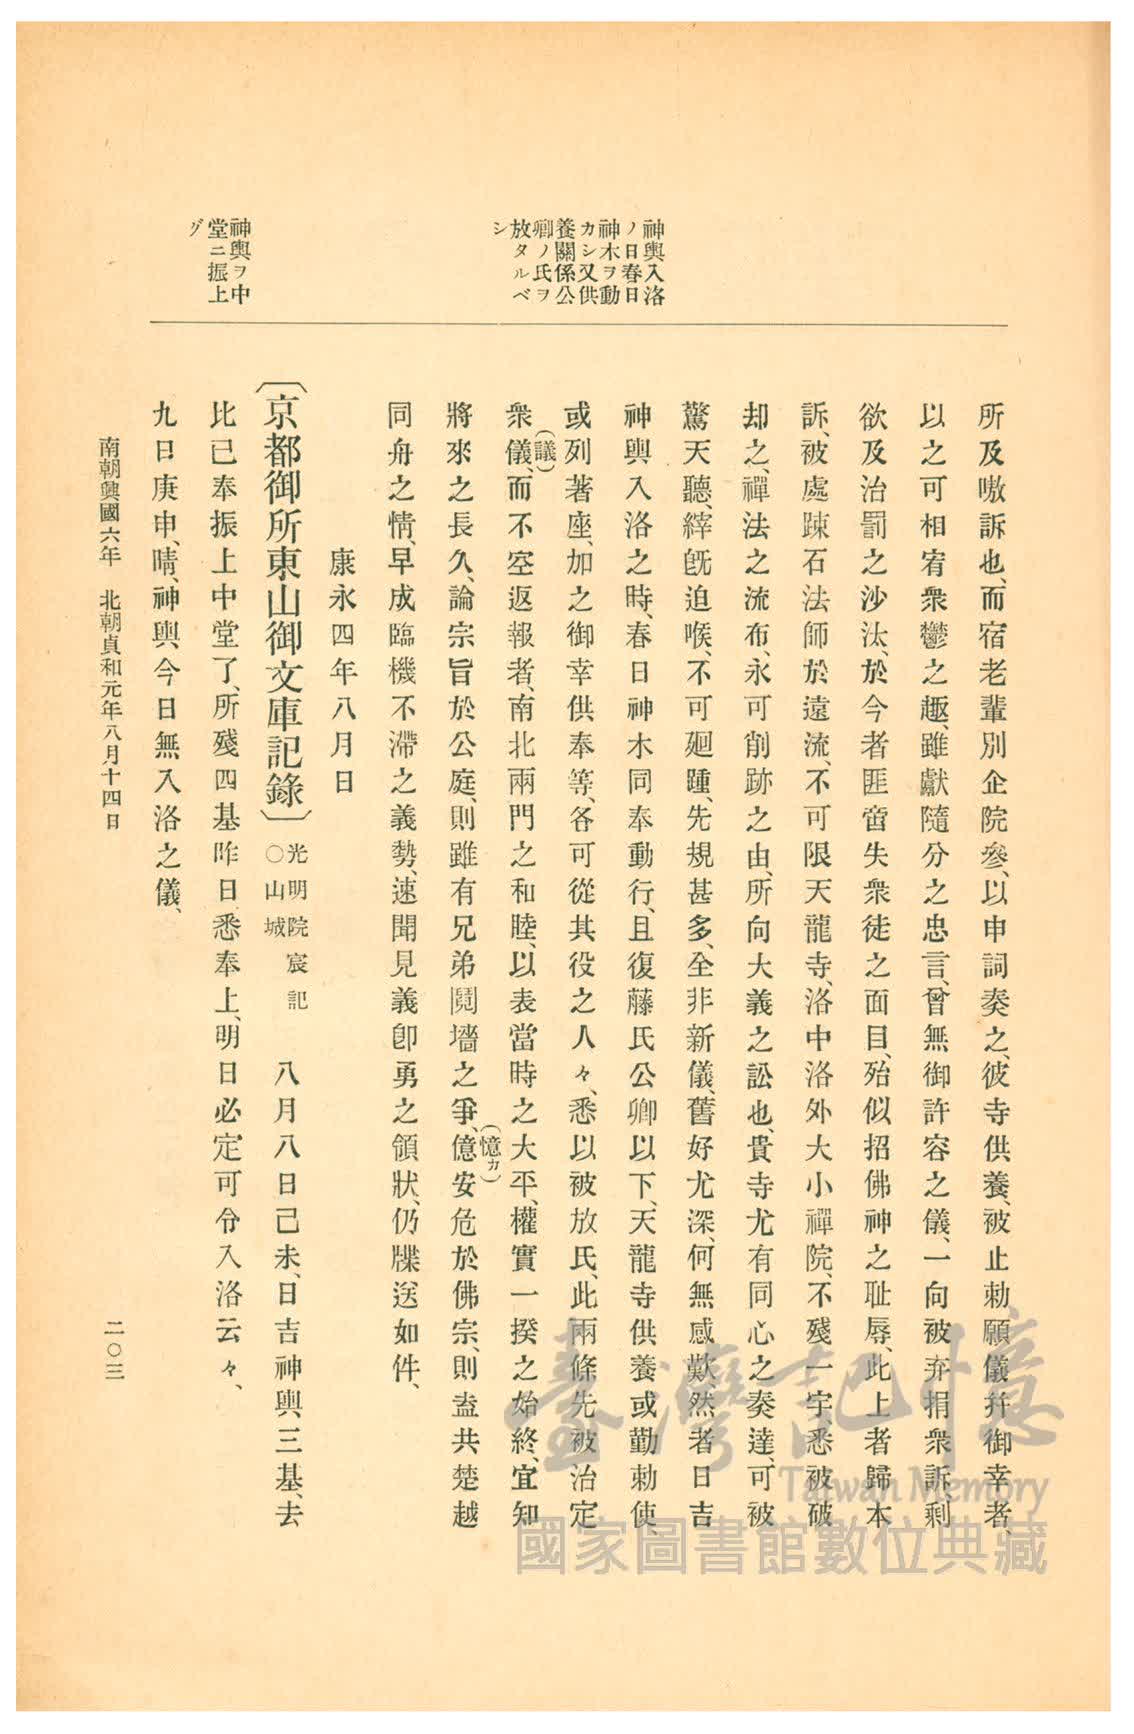 神輿入洛
ノ日春日
神木ヲ動
カシ又供
養關係公
卿ノ氏ヲ
放タルベ
シ
神輿ヲ中
堂ニ振上
グ
所及嗷訴也、而宿老輩別企院參、以申詞奏之、彼寺供養、被止勅願儀幷御幸者、
以之可相宥衆鬱之趣、雖獻隨分之忠言、曾無御許容之儀、一向被弃捐衆訴、剩
欲及治罰之沙汰、於今者匪啻失衆徒之面目、殆似招佛神之耻辱、此上者歸本
訴、被處踈石法師於遠流、不可限天龍寺、洛中洛外大小禪院、不殘一宇、悉被破
却之、禪法之流布、永可削跡之由、所向大義之訟也、貴寺尤有同心之奏達、可被
驚天聽、縡旣迫喉、不可廻踵、先規甚多、全非新儀、舊好尤深、何無感歎、然者日吉
神輿入洛之時、春日神木同奉動行、且復藤氏公卿以下、天龍寺供養或勤勅使、
或列著座、加之御幸供奉等、各可從其役之人々、悉以被放氏、此兩條先被治定
衆儀、(議)而不空返報者、南北兩門之和睦、以表當時之大平、權實一揆之始終、宜知
將來之長久、論宗旨於公庭、則雖有兄弟鬩墻之爭、億(憶カ)安危於佛宗、則盍共楚越
同舟之情、早成臨機不滯之義勢、速聞見義卽勇之領狀、仍牒送如件、
康永四年八月日
〔京都御所東山御文庫記錄〕光明院宸記〇山城 八月八日己未、日吉神輿三基、去
比已奉振上中堂了、所殘四基昨日悉奉上、明日必定可令入洛云々、
九日庚申、晴、神輿今日無入洛之儀、
南朝興國六年 北朝貞和元年八月十四日
二〇三
臺灣記憶
Taiwan Memory
國家圖書館數位典藏